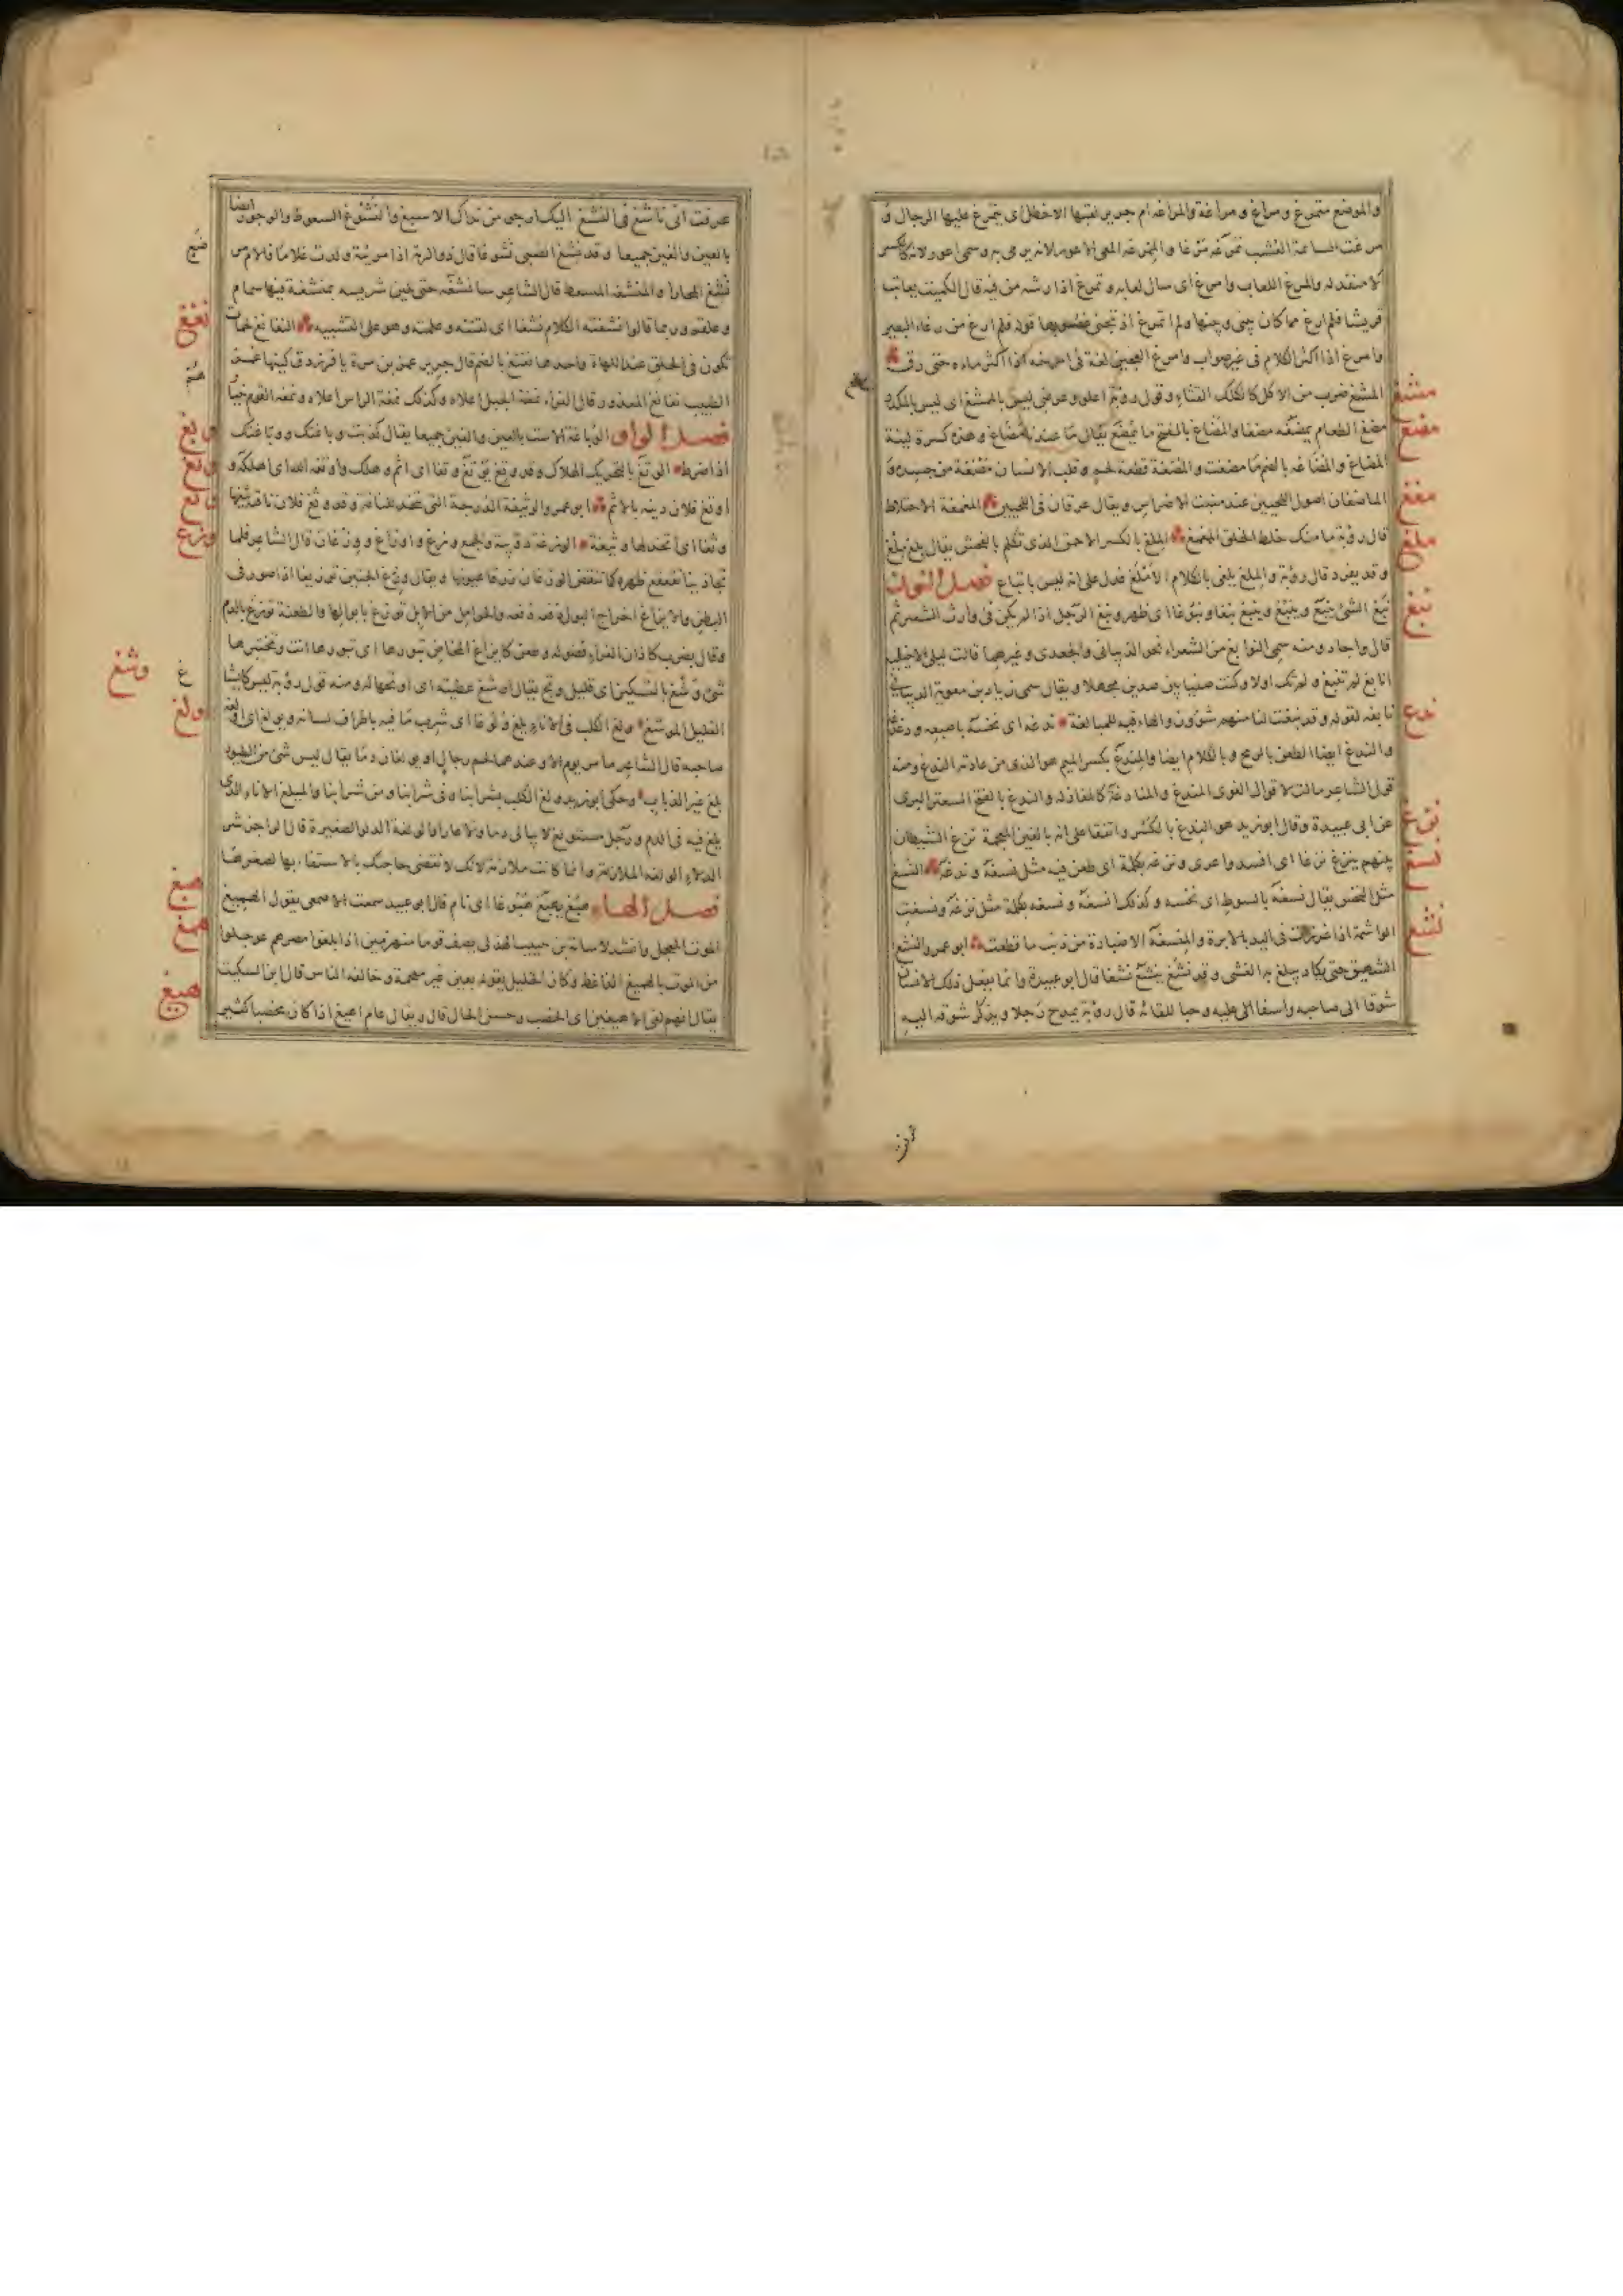 والموضع متمرغ ومراغ ومراغة والمراغة ام جرير لقبها الاخطل اى يتمرغ عليها الرجال و
مرغت السائمة العشب تمرغه مرغا والممرغة المعى الاعور لانه يرمى به وسمى اعور لانه كالكيس
لا منفذ له والمرغ اللعاب وامرغ اى سال لعابه وتمرغ اذا رشه من فيه قال الكميت يعاتب
قريشا فلم ارغ مما كان بينى وبينها ولم اتمرغ ان تجنى غضوبها قوله فلم ارغ من رغاء البعير
وامرغ اذا اكثر الكلام فى غير صواب وامرغ العجين لغة فى امرخه اذا اكثر ماءه حتى رق
المشغ ضرب من الاكل كاكلك القثاء وقول روبة اعلو وعرضى ليس بالممشغ اى ليس بالمكدر
مضغ الطعام يمضغه مضغا والمضاغ بالفتح ما يمضغ يقال ما عندنا مضاغ وهذه كسرة لينة
المضاغ والمضاغة بالضم ما مضغت والمضغة قطعة لحم وقلب الانسان مضغة من جسده و
الماضغان اصول اللحيين عند منبت الاضراس ويقال عرقان فى اللحيين المغمغة الاختلاط
قال روبة ما منك خلط الخلق الممغمغ الملغ بالكسر الاحمق الذى تكلم بالفحش يقال بلغ ملغ
وقد يفرد قال روبة والملغ يلغى بالكلام الاملغ فدل على انه ليس باتباع فصل النون
نبغ الشئ ينبغ وينبغ وينبغ نبغا ونبوغا اى ظهر ونبغ الرجل اذا لم يكن فى وارث الشعر ثم
قال واجاد ومنه سمى النوابغ من الشعراء نحو الذبيانى والجعدى وغيرهما قالت ليلى الاخيلية
انابغ لم تنبغ ولم تك اولا وكنت صنيا بين صدين مجهلا ويقال سمى زياد بن معوية الذبيانى
نابغة لقوله وقد نبغت لنا منهم شؤون والهاء فيه للمبالغة ندغه اى نخسه باصبعه ودغدغه
والندغ ايضا الطعن بالرمح وبالكلام ايضا والمندغ بكسر الميم هو الذى من عادته الندغ ومنه
قول الشاعر مالت لاقوال الغوى المندغ والمنادغة كالمغازلة والندغ بالفتح السعتر البرى
عن ابى عبيدة وقال ابو زيد هو الندغ بالكسر واتفقا على انه بالغين المعجمة نزغ الشيطان
بينهم ينزغ نزغا اى افسد واغرى ونزغه بكلمة اى طعن فيه مثل نسغه وندغه النسغ
مثل النخس يقال نسغه بالسوط اى نخسه وكذلك انسغه ونسغه بكلمة مثل نزغه ونسغت
الواشمة اذا غرزت فى اليد بالابرة والمنسغة الاضبارة من ذنب ما قطعت ابو عمرو النشغ
الشهيق حتى يكاد يبلغ به الغشى وقد نشغ ينشغ نشغا قال ابو عبيدة وانما يفعل ذلك الانسان
شوقا الى صاحبه واسفا اليه عليه وحبا للقائه قال روبة يمدح رجلا ويذكر شوقه اليه
مشغ
مضغ
مغغ
ملغ
نبغ
ندغ
نزغ
نسغ
نشغ
عرفت انى ناشغ فى النشغ اليك ارجو من نداك الاسبغ والنشوغ السعوط والوجور ايضا
بالعين والغين جميعا وقد نشغ الصبى نشوغا قال ذو الرمة اذا مرئية ولدت غلاما فالام مر
نشغ المحارا والمنشغة المسعط قال الشاعر سانشغه حتى يلين شريسه بمنشغة فيها سمام
وعلقم وربما قالوا نشغته الكلام نشغا اى لقنته وعلمته وهو على التشبيه النغانغ لحمات
تكون فى الحلق عند اللهاة واحدها نغنغ بالضم قال جرير غمز بن مرة يا فرزدق كينها غمز
الطبيب نغانغ المعذور قال الفراء نمغة الجبل اعلاه وكذلك نمغة الراس اعلاه ونمغة القوم خيا
فصل الواو الوباغة الاست بالعين والغين جميعا يقال كذبت وباغتك ووباغتك
اذا ضرط الوتغ بالتحريك الهلاك وقد وتغ يوتغ وتغا اى اثم وهلك واوتغه الله اى اهلكه و
اوتغ فلان دينه بالاثم ابو عمرو الوثيغة الدرجة التى تتخذ للناقة وقد وثغ فلان ناقته يثغها
وثغا اى اتخذ لها وثيغة الوزغة دويبة والجمع وزغ واوزاغ ووزغان قال الشاعر فلما
تجاذبنا تفقع ظهره كما تنقض الوزغان زرقا عيونها ويقال وزغ الجنين توزيغا اذا صور فى
البطن والايزاغ اخراج البول دفعة دفعة والحوامل من الابل توزغ بابوالها والطعنة توزغ بالدم
وقال بضرب كاذان الفراء فضوله وطعن كايزاغ المخاض تبورها اى تبورها انت وتختبرها
شئ وشغ بالتسكين اى قليل وتح يقال اوشغ عطيته اى اوتحها له ومنه قول روبة ليس كايشاغ
القليل الموشغ ولغ الكلب فى الاناء يلغ ولوغا اى شرب ما فيه باطراف لسانه ويولغ اى اولغه
صاحبه قال الشاعر ما مر يوم الا وعندهما لحم رجال او يولغان دما يقال ليس شئ من الطيور
يلغ غير الذباب وحكى ابو زيد ولغ الكلب بشرابنا وفى شرابنا ومن شرابنا والميلغ الاناء الذى
يلغ فيه فى الدم ورجل مستولغ لا يبالى ذما ولا عارا والولغة الدلو الصغيرة قال الراجز شر
الدلاء الولغة الملازمة وانما كانت ملازمة لانك لا تقضى حاجتك بالاستقاء بها لصغرها
فصل الهاء هبغ يهبغ هبوغا اى نام قال ابو عبيد سمعت الاصمعى يقول الهميغ
الموت المعجل وانشد لاسامة بن حبيب الهذلى يصف قوما منهزمين اذا بلغوا مصرهم عوجلوا
من الموت بالهميغ الذاعط وكان الخليل يقوله بعين غير معجمة وخالفه الناس قال ابن السكيت
يقال انهم لفى الاهيغين اى الخصب وحسن الحال قال ويقال عام اهيغ اذا كان مخصبا كثير
نغنغ
وبغ
وتغ
وثغ
وزغ
وشغ
ولغ
هبغ
همغ
هيغ